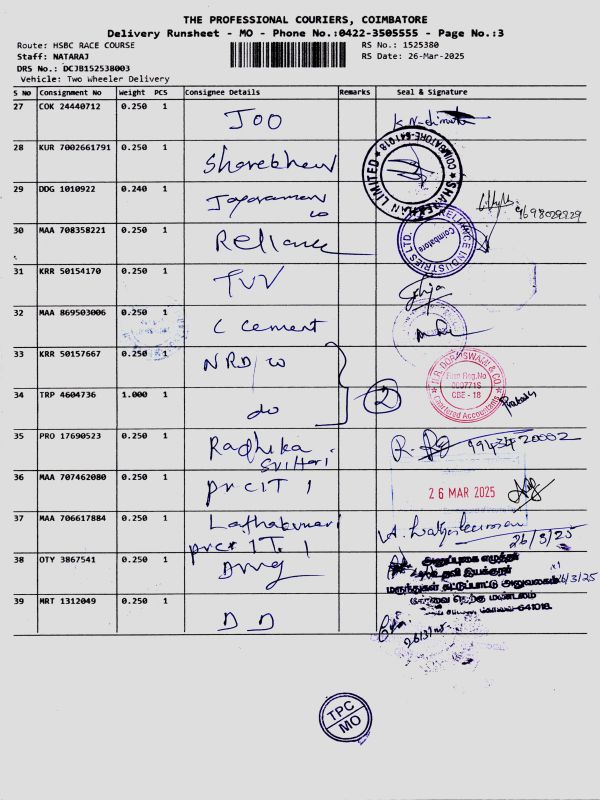 THE PROFESSIONAL COURIERS, COIMBATORE
Delivery Runsheet - MO - Phone No.:0422-3505555 - Page No.:3
Route: HSBC RACE COURSE
RS No.: 1525380
Staff: NATARAJ
RS Date: 26-Mar-2025
DRS No.: DCJB152538003
Vehicle: Two Wheeler Delivery
S No Consignment No Weight PCS Consignee Details Remarks Seal & Signature
27 COK 24440712 0.250 1 JOO
28 KUR 7002661791 0.250 1 Sharekhan
SHAREKHAN LIMITED COIMBATORE-641 018
29 DDG 1010922 0.240 1 Jayaraman
9698029229
30 MAA 708358221 0.250 1 Reliance
RELIANCE INDUSTRIES LTD. Coimbatore
31 KRR 50154170 0.250 1 TVV
32 MAA 869503006 0.250 1 C cement
33 KRR 50157667 0.250 1 NRD/co
34 TRP 4604736 1.000 1 do
2
Firm Reg.No
000771S
CBE - 18
Chartered Accountants
35 PRO 17690523 0.250 1 Radhika
Srihari
9943420002
36 MAA 707462080 0.250 1 prCIT 1
26 MAR 2025
37 MAA 706617884 0.250 1 Lathakumari
26/3/25
prcs IT. 1
38 OTY 3867541 0.250 1 Drug
மருந்துகள் கட்டுப்பாட்டு அலுவலகம்
39 MRT 1312049 0.250 1 D D
26/3/25
TPC
MO